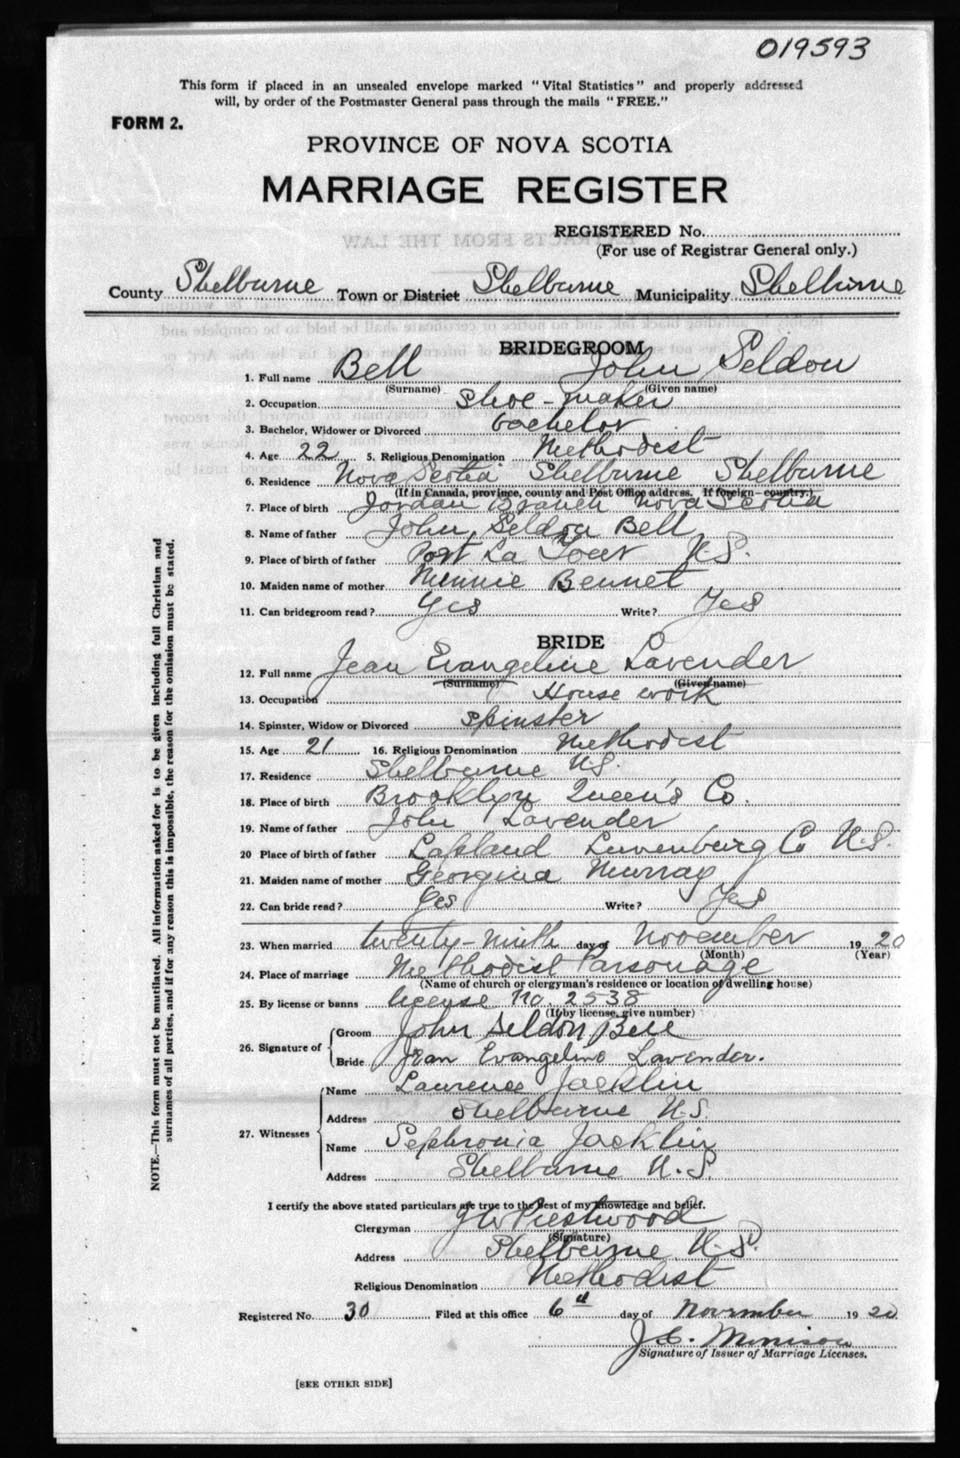 019593
This form if placed in an unsealed envelope marked "Vital Statistics" and properly addressed
will, by order of the Postmaster General pass through the mails "FREE."
FORM 2.
PROVINCE OF NOVA SCOTIA
MARRIAGE REGISTER
REGISTERED No.
(For use of Registrar General only.)
County Shelburne Town or District Shelburne Municipality Shelburne
BRIDEGROOM
1. Full name Bell John Seldon
(Surname) (Given name)
2. Occupation Shoe-maker
3. Bachelor, Widower or Divorced bachelor
4. Age 22 5. Religious Denomination Methodist
6. Residence Nova Scotia Shelburne Shelburne
(If in Canada, province, county and Post Office address. If foreign—country.)
7. Place of birth Jordan Branch Nova Scotia
8. Name of father John Seldon Bell
9. Place of birth of father Port La Tour N.S.
10. Maiden name of mother Minnie Bennet
11. Can bridegroom read? Yes Write? Yes
BRIDE
12. Full name Jean Evangeline Lavender
(Surname) (Given name)
13. Occupation House work
14. Spinster, Widow or Divorced spinster
15. Age 21 16. Religious Denomination Methodist
17. Residence Shelburne N.S.
18. Place of birth Brooklyn Queen's Co.
19. Name of father John Lavender
20 Place of birth of father Lapland Lunenburg Co N.S.
21. Maiden name of mother Georgina Murray
22. Can bride read? Yes Write? Yes
23. When married twenty-ninth day of November 1920
(Month) (Year)
24. Place of marriage Methodist Parsonage
(Name of church or clergyman's residence or location of dwelling house)
25. By license or banns license No. 2538
(If by license, give number)
26. Signature of Groom John Seldon Bell
Bride Jean Evangeline Lavender.
27. Witnesses Name Laurence Jacklin
Address Shelburne N.S.
Name Sephronia Jacklin
Address Shelburne N.S.
I certify the above stated particulars are true to the best of my knowledge and belief.
Clergyman J W Prestwood
(Signature)
Address Shelburne N.S.
Religious Denomination Methodist
Registered No. 30 Filed at this office 6th day of November 1920
J.C. Morrison
Signature of Issuer of Marriage Licenses.
[SEE OTHER SIDE]
NOTE.—This form must not be mutilated. All information asked for is to be given including full Christian and
surnames of all parties, and if for any reason this is impossible, the reason for the omission must be stated.